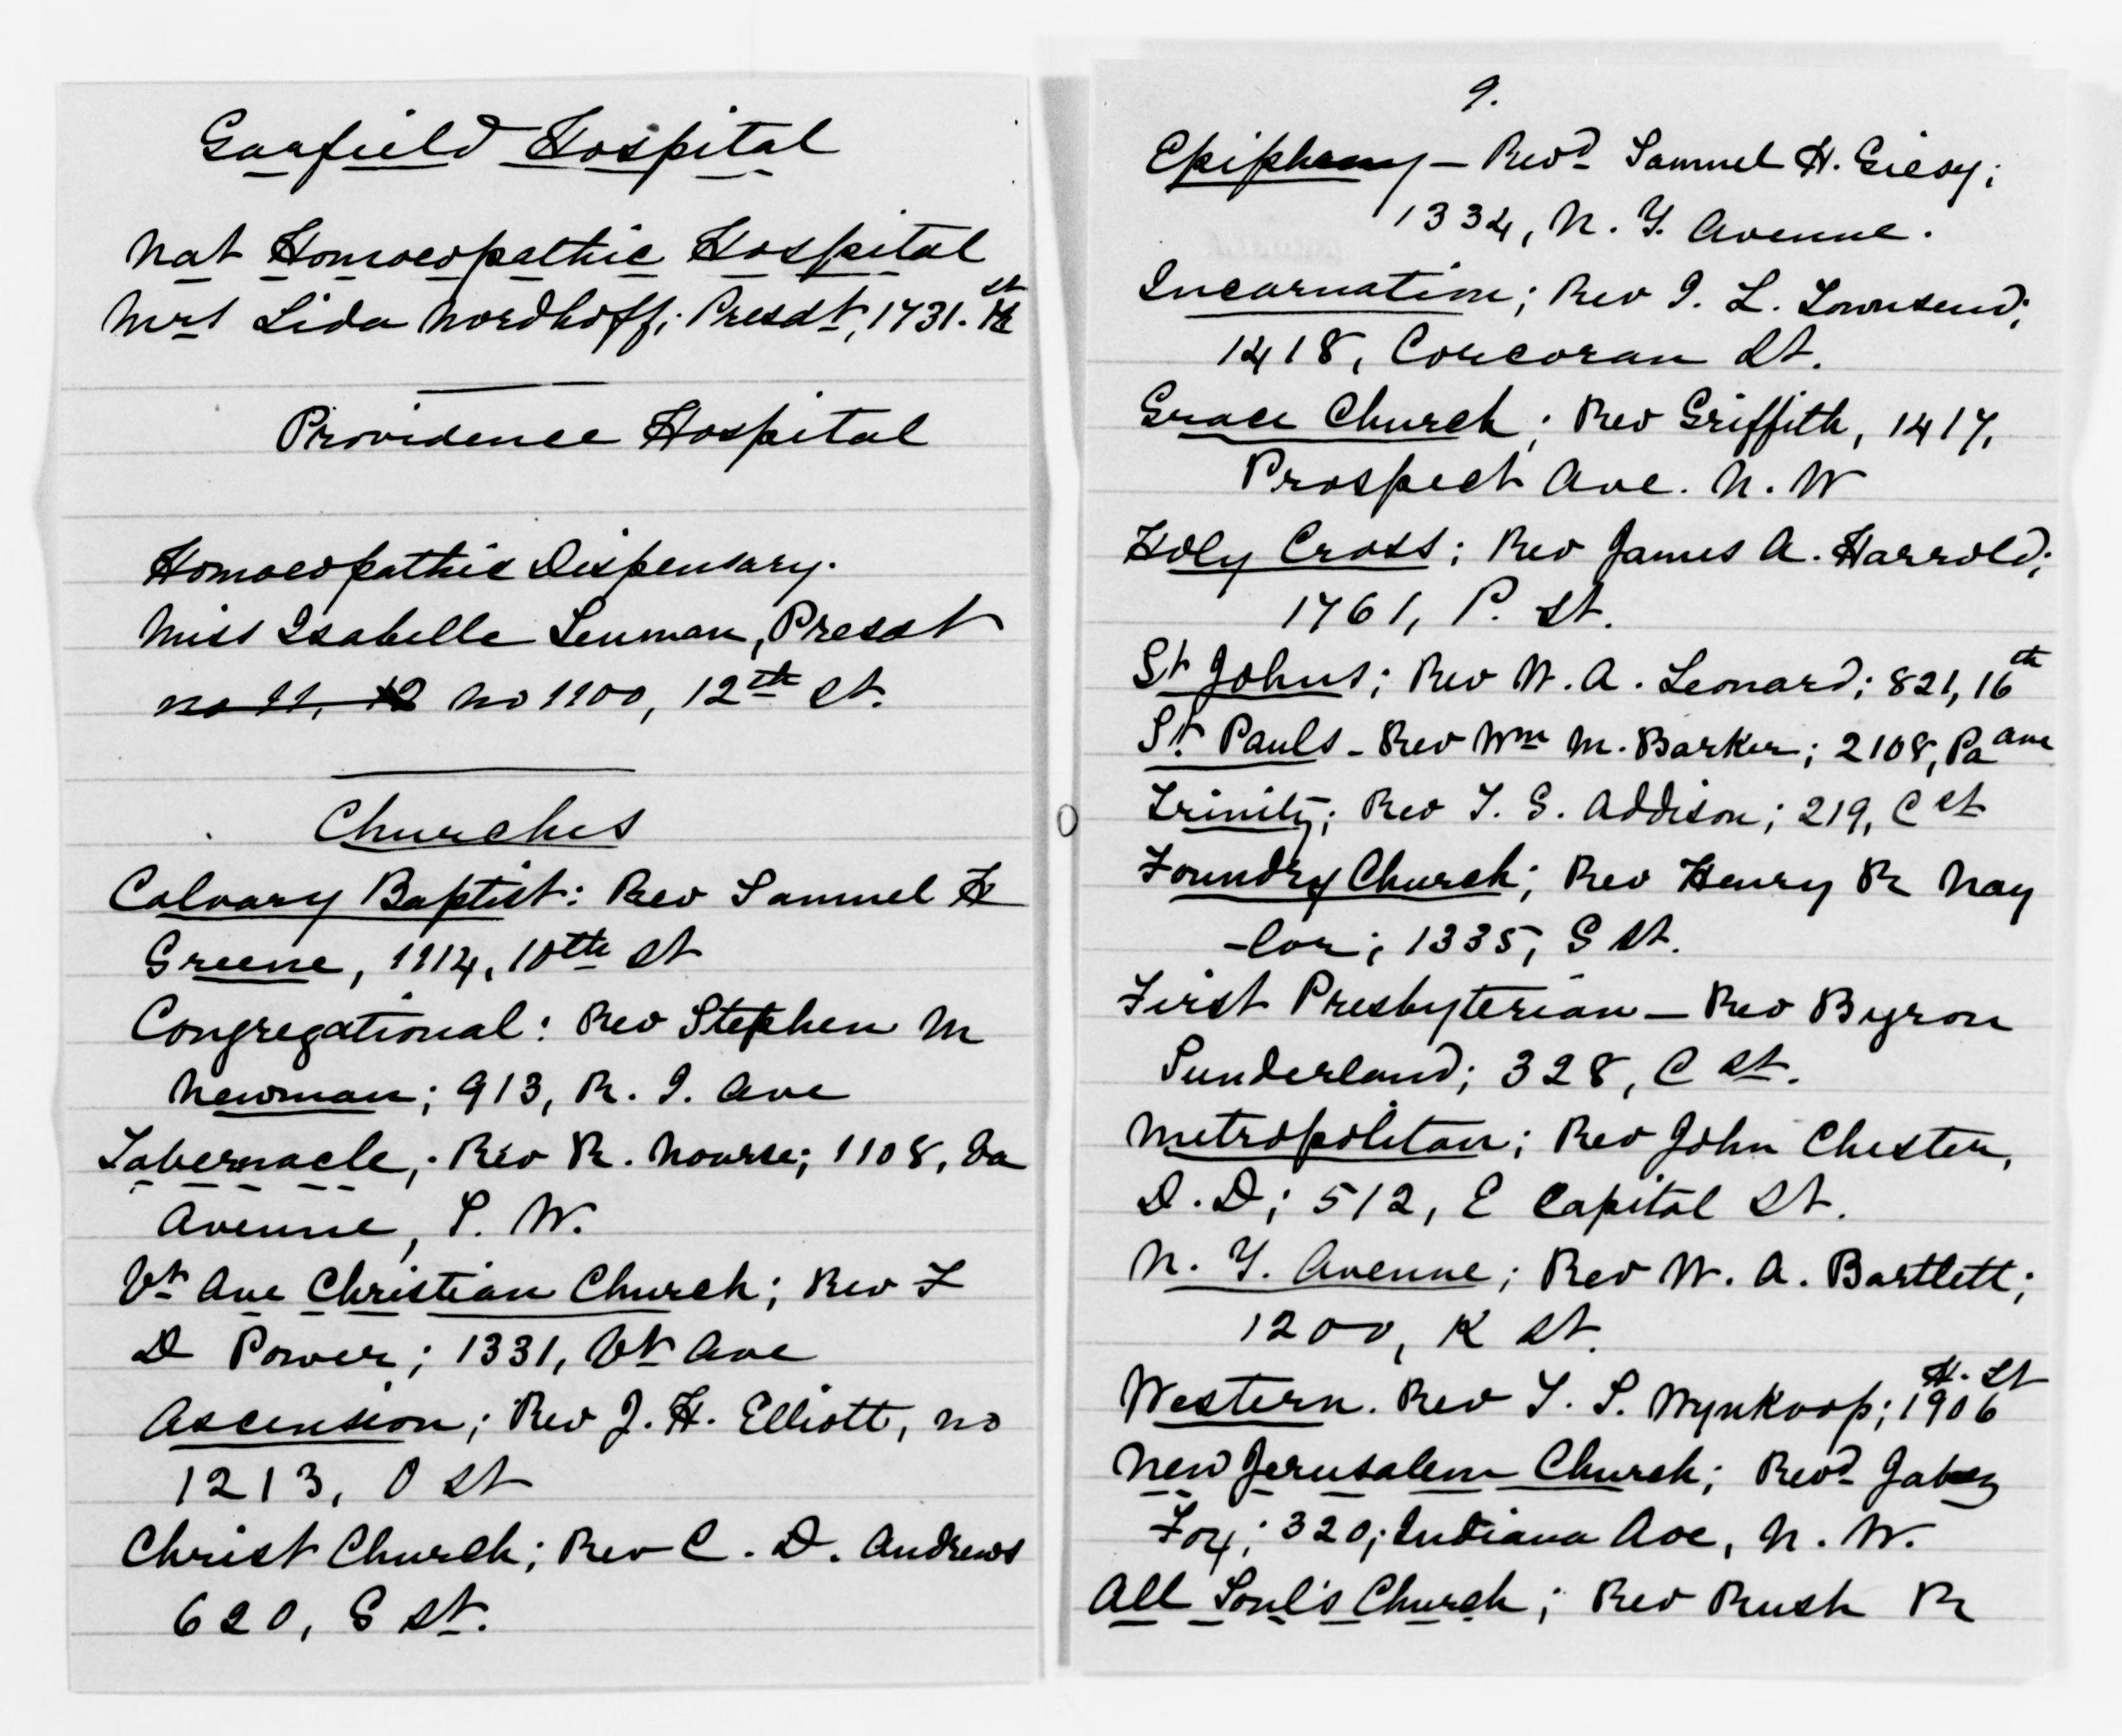 Garfield Hospital
Nat Homoeopathic Hospital
Mrs Lida Nordhoff; Presdt, 1731. K st
Providence Hospital
Homoeopathic Dispensary.
Miss Isabelle Lenman, Presdt
no 11, 12 no 1100, 12th st.
Churches
Calvary Baptist: Rev Samuel H
Greene, 1114, 10th st
Congregational: Rev Stephen M
Newman; 913, R. I. Ave
Tabernacle; Rev R. Nourse; 1108, Va
Avenue, S. W.
Vt Ave Christian Church; Rev F
D Power; 1331, Vt Ave
Ascension; Rev J. H. Elliott, no
1213, O st
Christ Church; Rev C. D. Andrews
620, G st.
9.
Epiphany – Revd Samuel H. Giesy;
1334, N. Y. Avenue.
Incarnation; Rev I. L. Townsend;
1418, Corcoran St.
Grace Church; Rev Griffith, 1417,
Prospect Ave. N. W
Holy Cross; Rev James A. Harrold;
1761, P. St.
St Johns; Rev W. A. Leonard; 821, 16th
St Pauls – Rev Wm M. Barker; 2108, Pa ave
Trinity; Rev T. G. Addison; 219, C st
Foundry Church; Rev Henry R Nay
-lor; 1335, G St.
First Presbyterian – Rev Byron
Sunderland; 328, C St.
Metropolitan; Rev John Chester,
D. D; 512, E Capitol St.
N. Y. Avenue; Rev W. A. Bartlett;
1200, K St.
Western. Rev T. S. Wynkoop; 1906 H. St
New Jerusalem Church; Revd Jabez
Fox; 320; Indiana Ave, N. W.
All Soul's Church; Rev Rush R